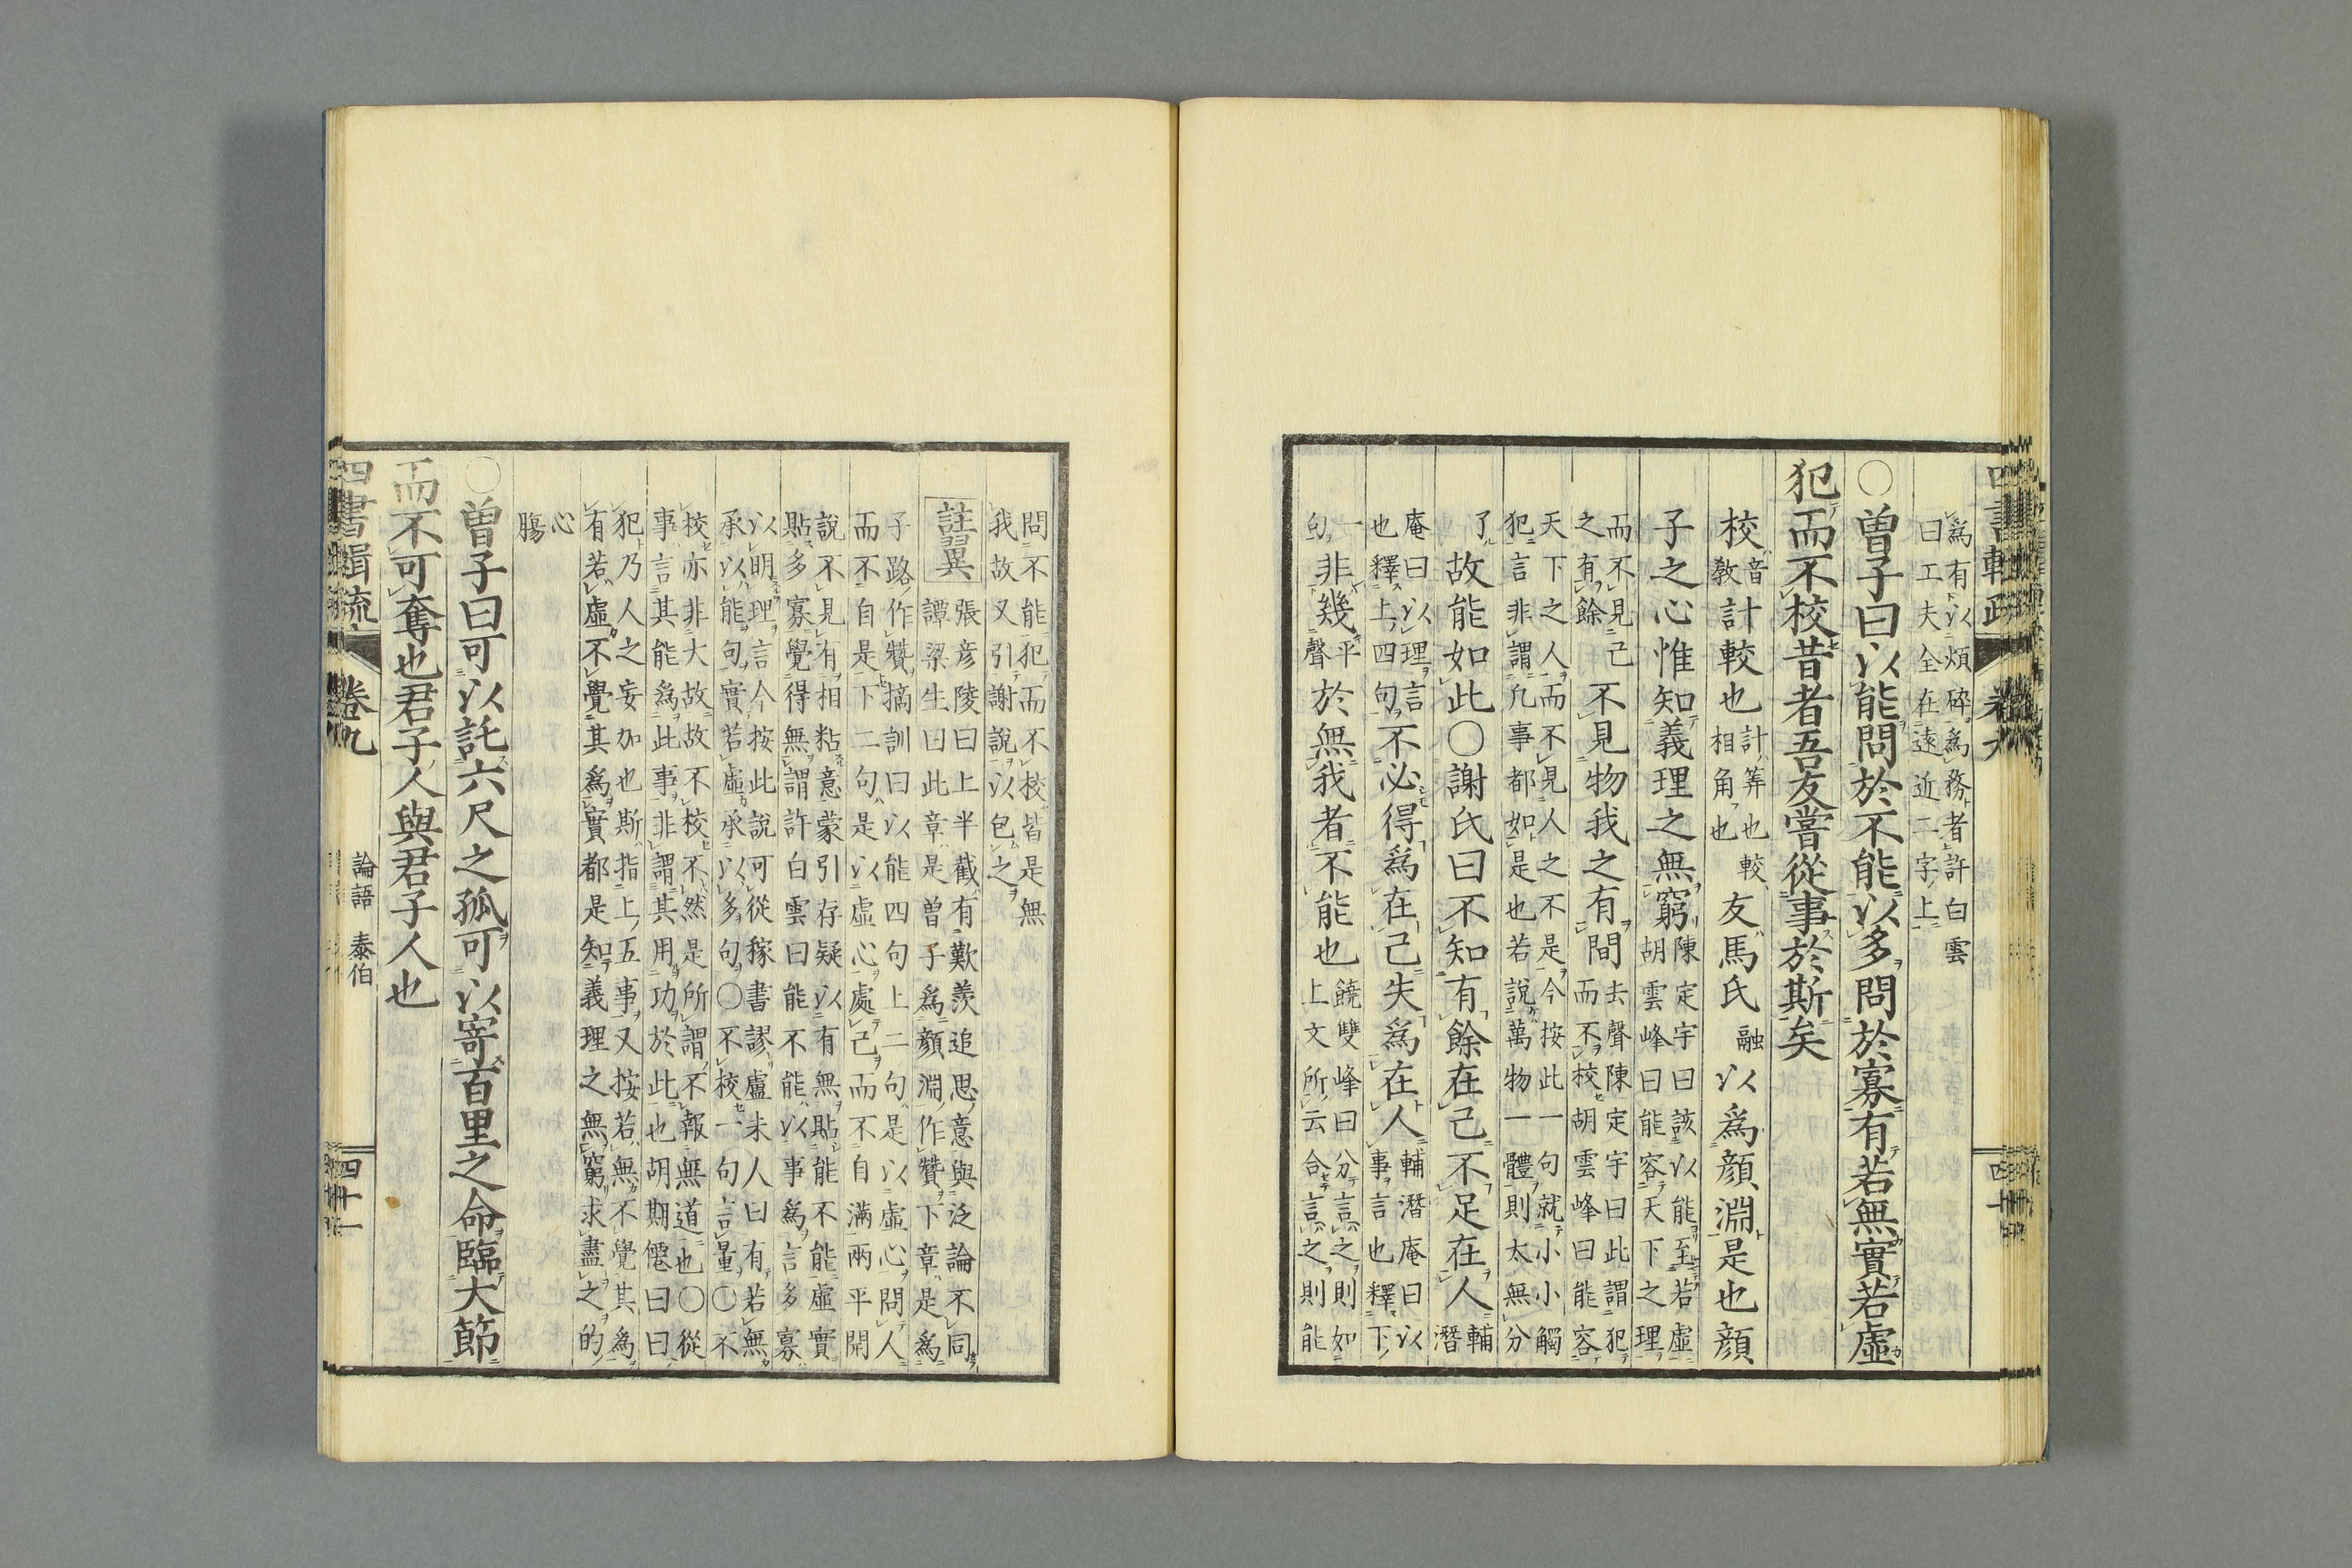 爲有以煩碎爲務者許白雲
曰工夫全在遠近二字上
〇曽子曰以能問於不能以多問於寡有若無實若虛
犯而不校昔者吾友嘗從事於斯矣
校音敎計較也計筭也較相角也友馬氏融以爲顔淵是也顔
子之心惟知義理之無窮陳定宇曰該以能至若虛胡雲峰曰能容天下之理
而不見己之有餘不見物我之有間去聲陳定宇曰此謂犯而不校胡雲峰曰能容
天下之人而不見人之不是今按此一句就小小觸
犯言非謂凡事都如是也若說萬物一體則太無分
了故能如此〇謝氏曰不知有餘在己不足在人輔潛
庵曰以理言也釋上四句不必得爲在己失爲在人輔潛庵曰以事言也釋下
一句非幾平聲於無我者不能也饒雙峰曰分言之則如上文所云合言之則能
問不能犯而不校皆是無
我故又引謝說以包之
註翼張彦陵曰上半截有歎羨追思意與泛論不同
譚梁生曰此章是曽子爲顔淵作贊下章是爲
子路作贊摘訓曰以能四句上二句是以虛心問人
而不自是下二句是以虛心處己而不自滿兩平開
說不見有相粘意蒙引存疑以有無貼能不能虛實
貼多寡覺得無謂許白雲曰能不能以事爲言多寡
以明理言今按此說可從稼書謬盧未人曰有若無
承以能句實若虛承以多句〇不校一句言量〇不
校亦非大故故不校不然是所謂不報無道也〇從
事言其能爲此事非謂其用功於此也胡期僊曰曰
犯乃人之妄加也斯指上五事又按若無不覺其爲
有若虛不覺其爲實都是知義理之無窮求盡之的
心
膓
〇曽子曰可以託六尺之孤可以寄百里之命臨大節
而不可奪也君子人與君子人也
四書輯疏 卷九 論語 泰伯 四十一